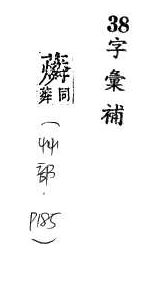 38字彙補
同
(艸部.P185)